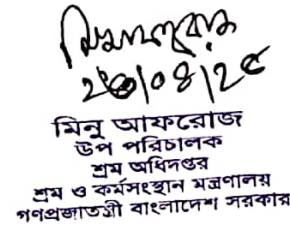 ২০/০৪/২৫
মিনু আফরোজ
উপ পরিচালক
শ্রম অধিদপ্তর
শ্রম ও কর্মসংস্থান মন্ত্রণালয়
গণপ্রজাতন্ত্রী বাংলাদেশ সরকার